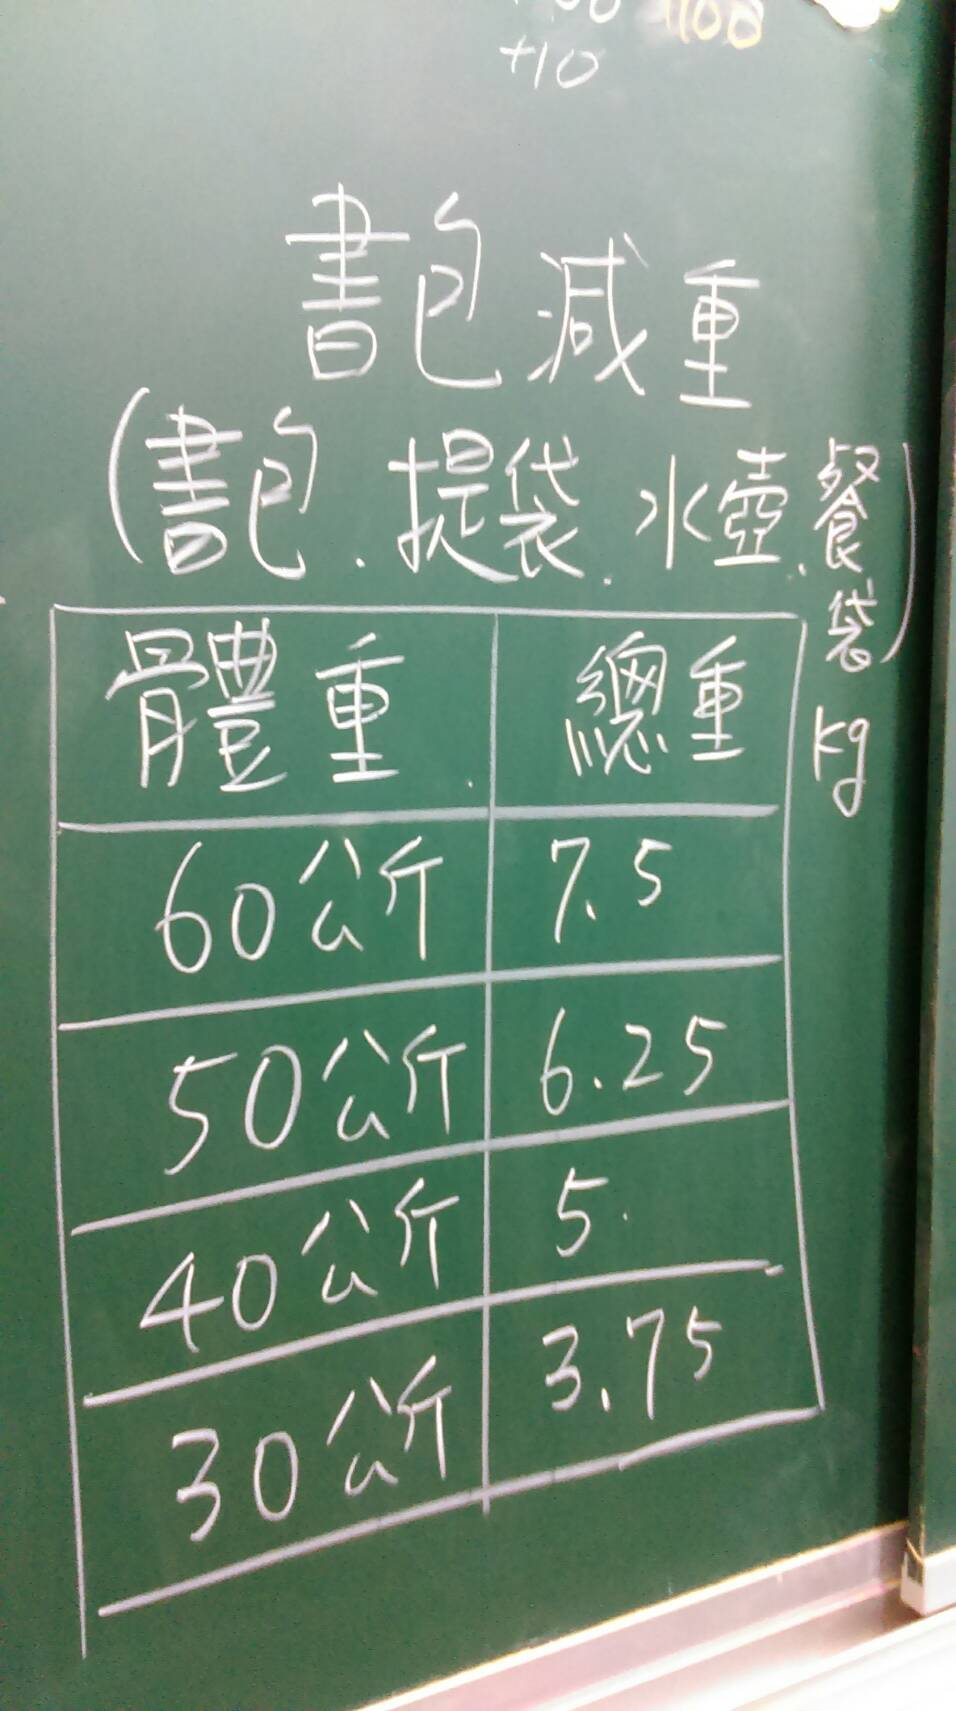 +10
書包減重
(書包.提袋.水壺.餐袋)
體重. 總重 kg
60公斤 7.5
50公斤 6.25
40公斤 5.
30公斤 3.75